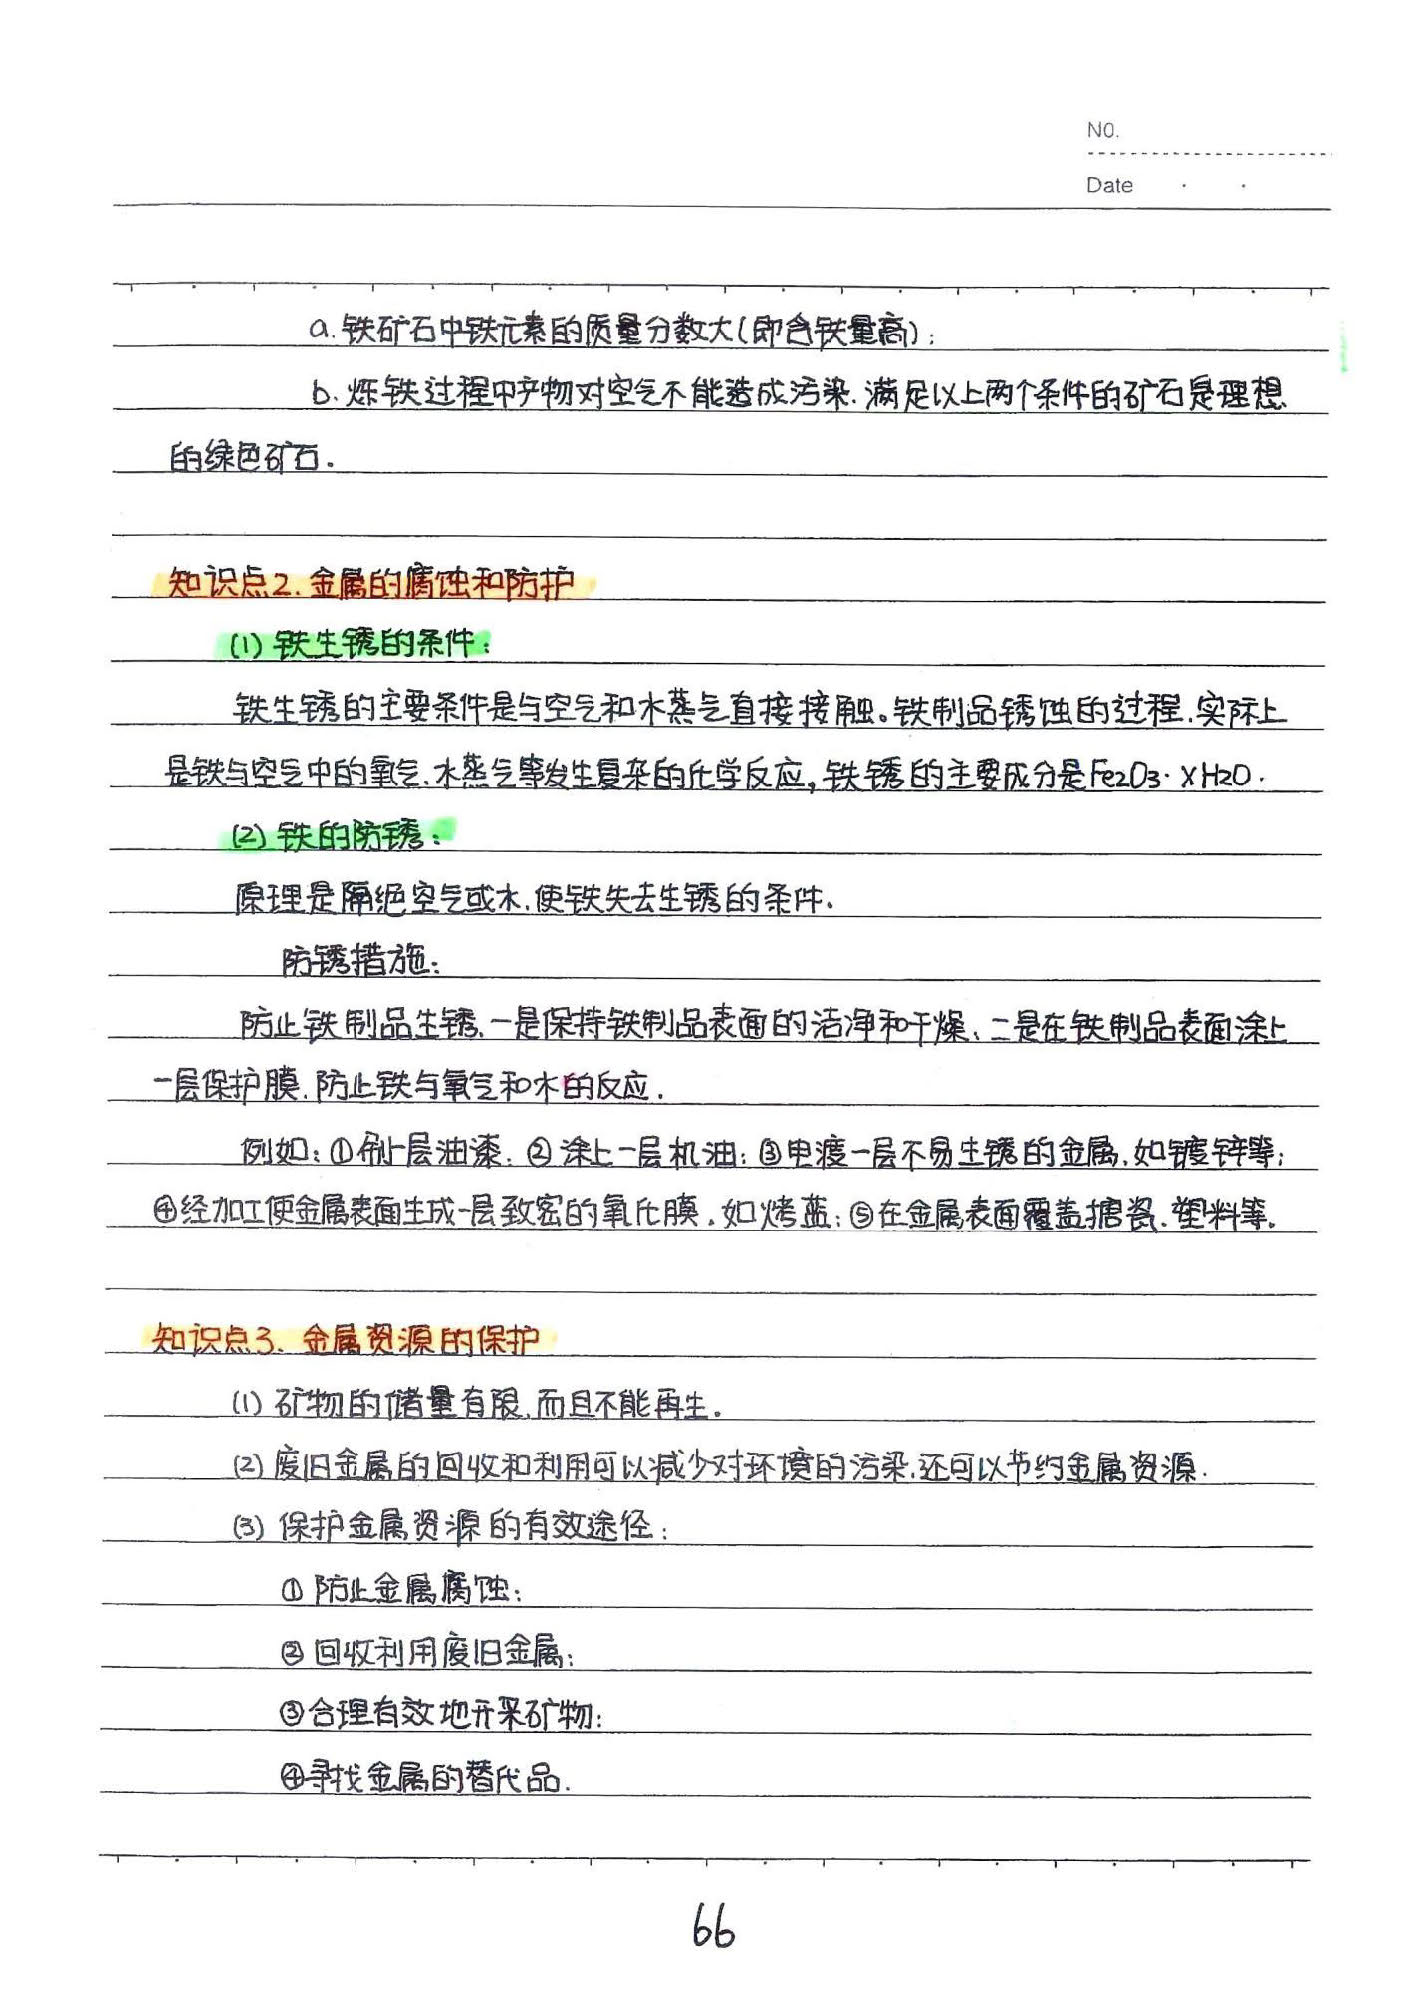 NO.
Date · ·
a. 铁矿石中铁元素的质量分数大(即含铁量高);
b. 炼铁过程中产物对空气不能造成污染. 满足以上两个条件的矿石是理想
的绿色矿石.
知识点2. 金属的腐蚀和防护
(1) 铁生锈的条件:
铁生锈的主要条件是与空气和水蒸气直接接触。铁制品锈蚀的过程, 实际上
是铁与空气中的氧气、水蒸气等发生复杂的化学反应, 铁锈的主要成分是Fe2O3·XH2O.
(2) 铁的防锈:
原理是隔绝空气或水, 使铁失去生锈的条件.
防锈措施:
防止铁制品生锈, 一是保持铁制品表面的洁净和干燥, 二是在铁制品表面涂上
一层保护膜, 防止铁与氧气和水的反应.
例如: ①刷一层油漆; ②涂上一层机油; ③电渡一层不易生锈的金属, 如镀锌等;
④经加工使金属表面生成一层致密的氧化膜, 如烤蓝; ⑤在金属表面覆盖搪瓷、塑料等.
知识点3. 金属资源的保护
(1) 矿物的储量有限, 而且不能再生.
(2) 废旧金属的回收和利用可以减少对环境的污染, 还可以节约金属资源.
(3) 保护金属资源的有效途径:
①防止金属腐蚀;
②回收利用废旧金属;
③合理有效地开采矿物;
④寻找金属的替代品.
66